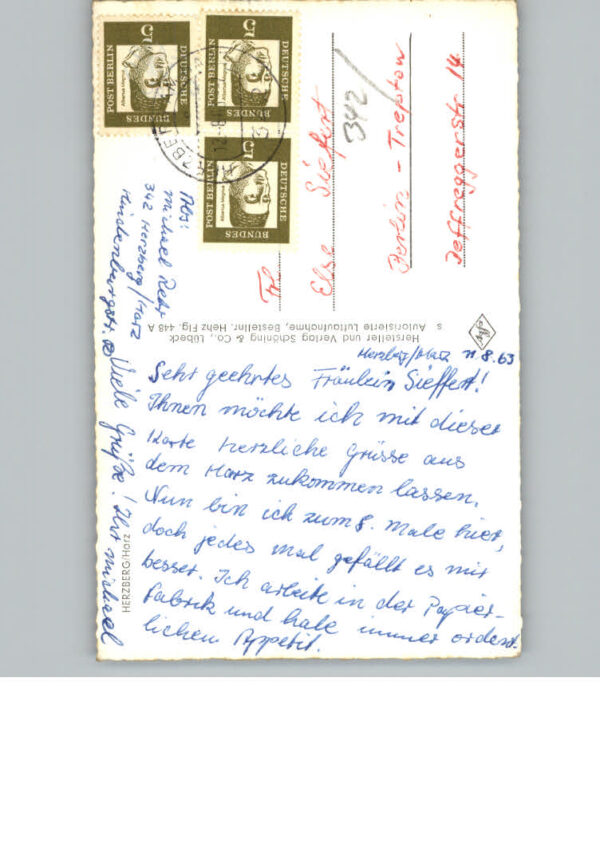 Herzberg/Harz 11.8.63
Sehr geehrtes Fräulein Sieffert!
Ihnen möchte ich mit dieser
Karte herzliche Grüsse aus
dem Harz zukommen lassen.
Nun bin ich zum 8. Male hier,
doch jedes mal gefällt es mir
besser. Ich arbeite in der Papier-
fabrik und habe immer ordent-
lichen Appetit.
Viele Grüße! Ihr Michael
Abs:
Michael
342 Herzberg/Harz
Hindenburgstr.
HERZBERG/Harz
Frl
Else Sieffert
Berlin - Treptow
14
342/
Hersteller und Verlag Schöning & Co., Lübeck
s Autorisierte Luftaufnahme, Bestellnr. Hehz Flg. 448 A
DEUTSCHE
BUNDES
POST BERLIN
5
DEUTSCHE
BUNDES
POST BERLIN
5
DEUTSCHE
BUNDES
POST BERLIN
5